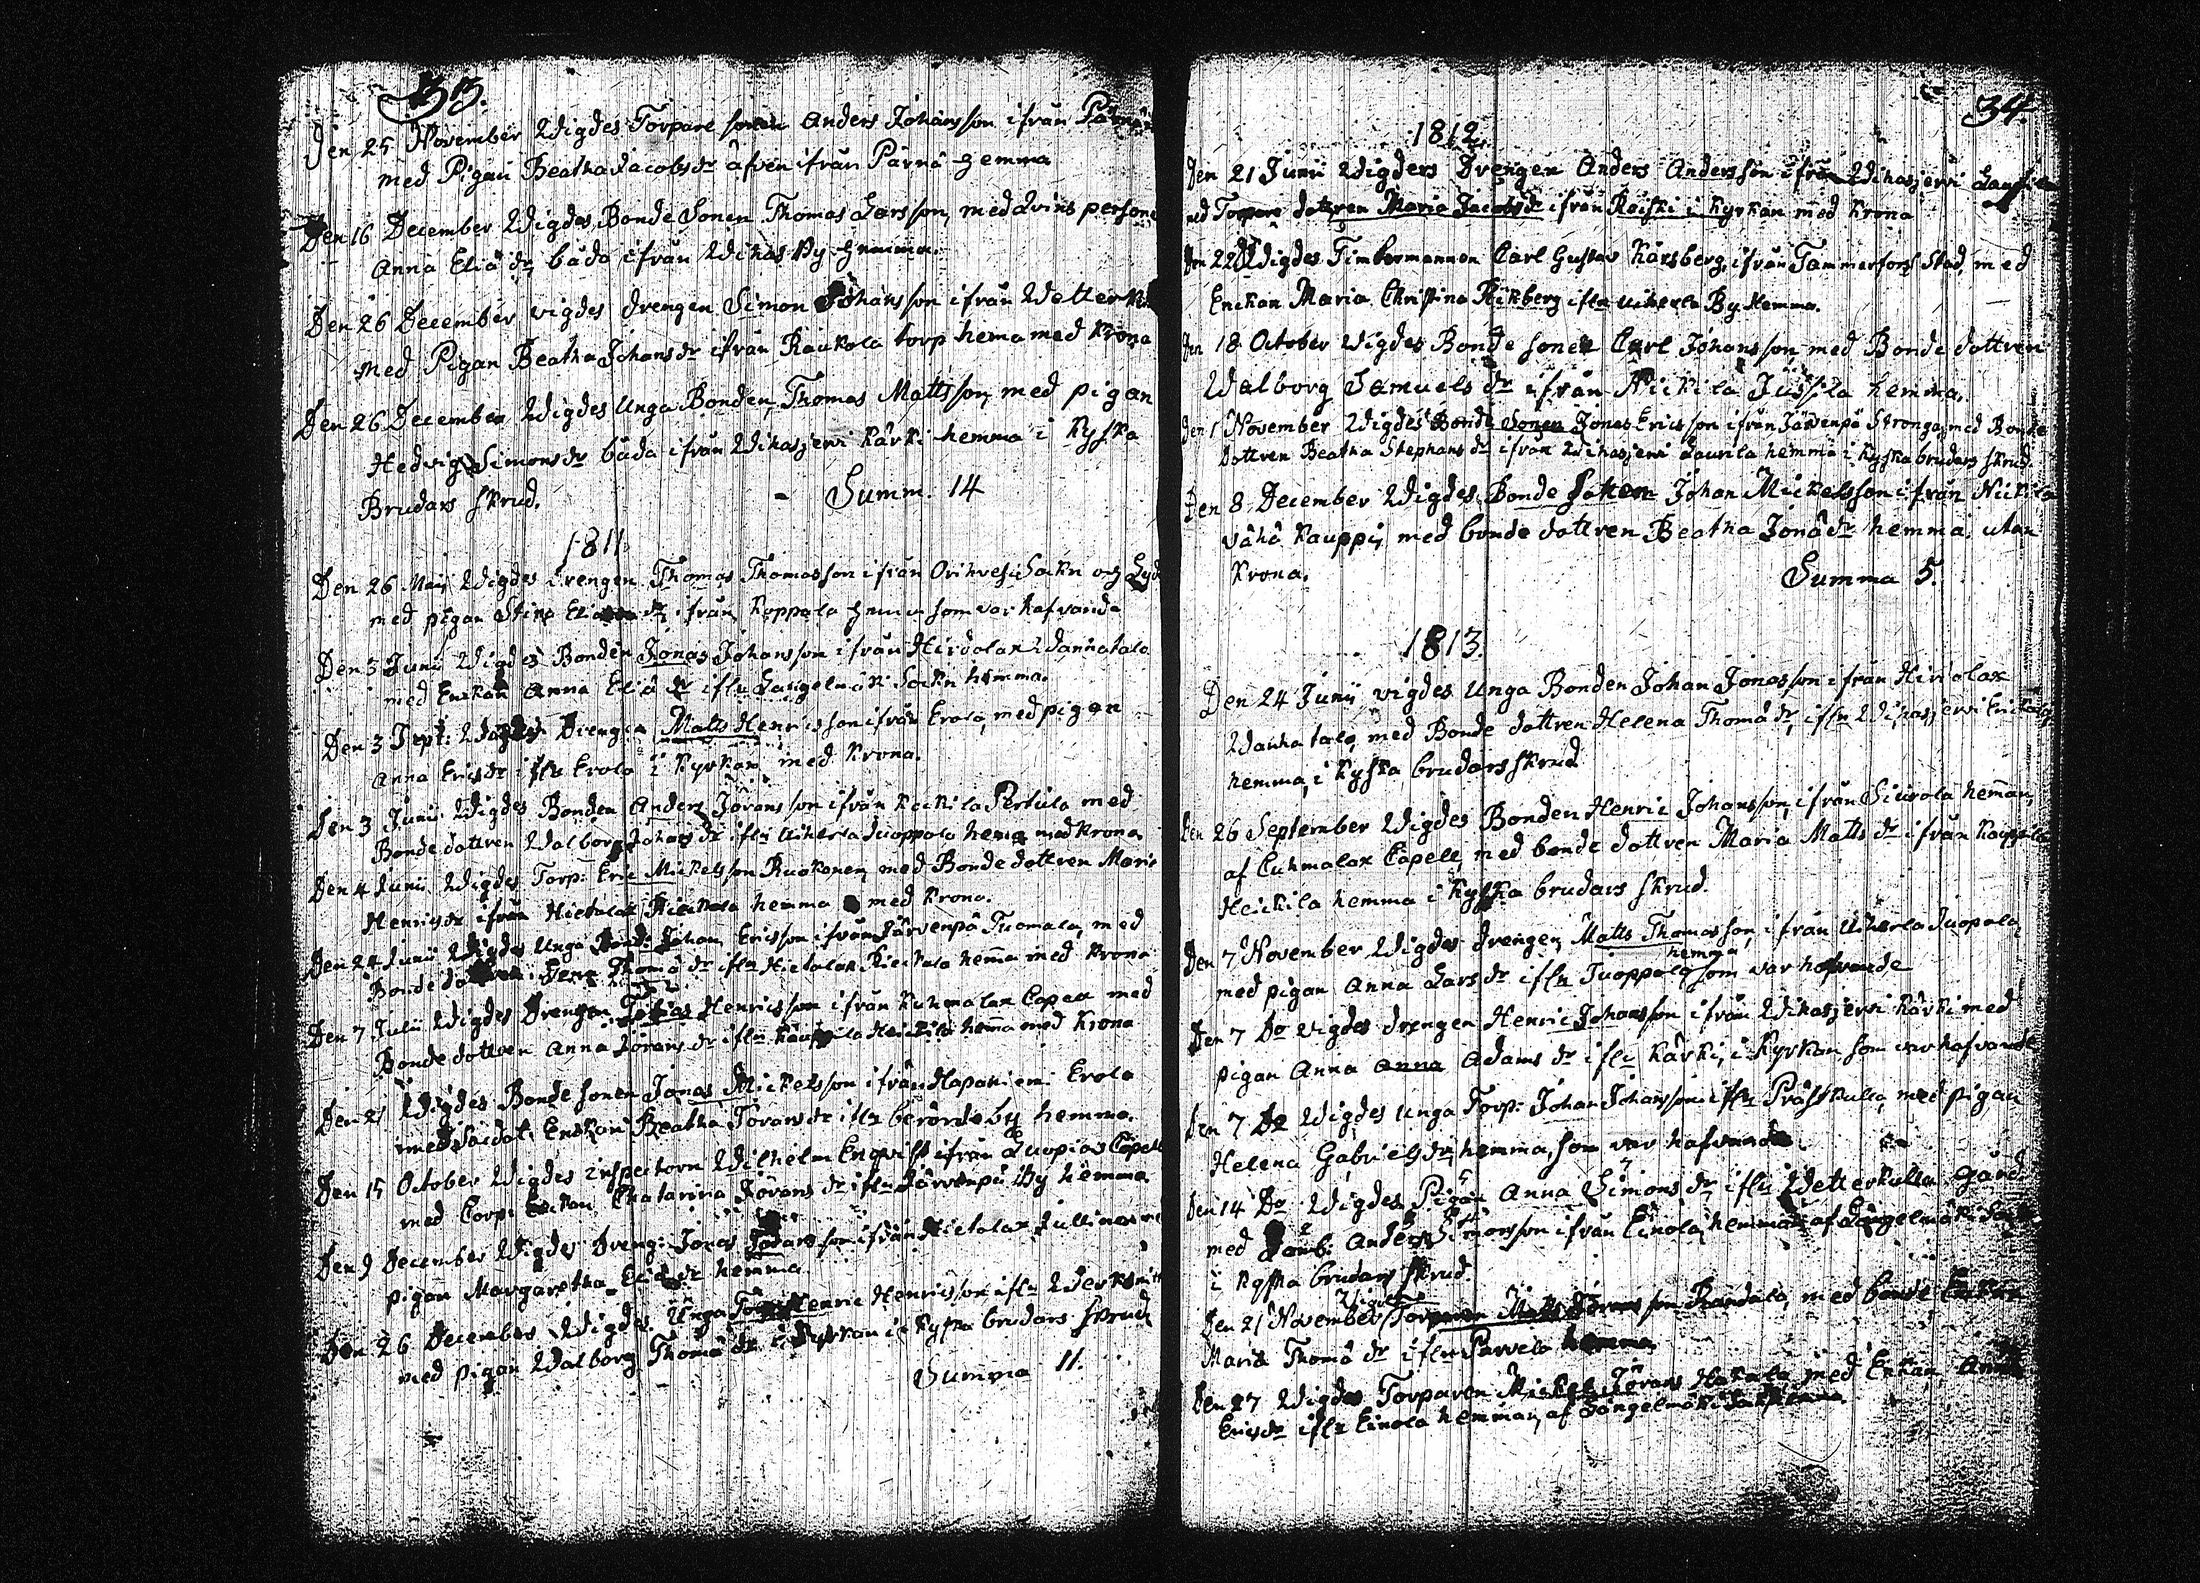 33.
Den 25 November Wigdes Torpare sonen Anders Johansson ifrån Pärnä
med Pigan Beatha Jacobsdr äfven ifrån Pärnä hemma
Den 16 December Wigdes Bonde Sonen Thomas Larsson, med Qvins person
Anna Eliä dr båda ifrån Wihas By hemma.
Den 26 December vigdes drengen Simon Johansson ifrån Wetter
med Pigan Beatha Johansdr ifrån Raukola torp hema med Krona
Den 26 December Wigdes Unga Bonden, Thomas Mattsson, med pigan
Hedvig Simonsdr båda ifrån Wihasjerwi Kärki hemma i Kyska
Brudars skrud. - Summ. 14
1811
Den 26 Maij Wigdes drengen Thomas Thomasson ifrån Orihvesi Sokn og
med pigan Stina dr ifrån Koppala som var hafvande
Den 3 Junii Wigdes Bonden Jonas Johansson ifrån Hirdolax
med Enkan Anna Eliä dr ifrn Längelmäki Sokn hemma.
Den 3 Sept: Wigdes Drengen Matts Henricsson ifrån Erola, med pigan
Anna Ericsdr ifrn Erola i Kyrkan med Krona.
Den 3 Junii Wigdes Bonden Anders Jöransson ifrån Perttula med
Bonde dottren Walborg Johansdr ifrn Uiherla Juoppala hema med Krona
Den 4 Junii Wigdes Torp: Eric Mickelsson Ruokonen, med Bonde dottren Maria
Henricsdr ifrån Hietolax hemma med Krona.
Den 24 Junii Wigdes Unga Johan Ericsson ifrån Järvenpä Tuomala, med
Bonde Thomä dr ifrn Hietolax hemma med Krona
Den 7 Julii Wigdes Drengen Tobias Henricsson ifrån Kuhmalax Capell med
Bonde dottren Anna Jörans dr ifrn Heickilä hemma med Krona
Den 21 Wigdes Bonde sonen Jonas Mickelsson ifrån Hapaniemi Erola
med Enkan Beatha Jöransdr ifrn berörde by hemma.
Den 15 October Wigdes inspectorn Wilhelm Enqvist ifrån Luopiois Capell
med Corp: Enkan Chatarina Jörans dr ifrn Järvenpä By hemma
Den 9 December Wigdes Dreng: Jonas ifrån Hietolax
pigan Margaretha Eliä dr hemma
Den 26 December Wigdes Unga Henric Henricsson ifrn
med pigan Walborg Thomä dr i Kyrkan i Kyska brudars skrud
Summa 11.
34.
1812.
Den 21 Junii Wigders Drengen Anders Andersson ifrån Wihasjerwi
med Torpare dottren Maria Jacobsdr ifrån Koiski i Kyrkan med Krona
Den 22 Wigdes Timbermannen Carl Gustav Kårsberg, ifrån Tammerfors Stad, med
Enckan Maria Christina Rikberg ifrn Uiherla By Hemma.
Den 18 October Wigdes Bonde sonen Carl Johansson, med Bonde dottren
Walborg Samuels dr ifrån Nickila Jussila hemma.
Den 1 November Wigdes Bonde Sonen Jonas Ericsson ifrån Järvenpä Stronga, med Bonde
dottren Beatha Stephans dr ifrån Wihasjerwi Laurila hemma i Kyska brudars skrud.
Den 8 December Wigdes Bonde Johan Mickelsson ifrån Nickila
vähä Kauppi, med bonde dottren Beatha Jonä dr hemma utan
Krona. Summa 5.
1813.
Den 24 Junii vigdes Unga Bonden Johan Jonasson ifrån Hirdolax
med Bonde dottren Helena Thomä dr, ifrn Wihasjerwi
hemma, i Kyska brudars skrud
Den 26 September Wigdes Bonden Henric Johansson, ifrån Siurola hemman,
af Cuhmalax Capell, med bonde dottren Maria Matts dr ifrån
Heickila hemma i Kyska brudars skrud.
Den 7 November Wigdes drengen Matts Thomasson, ifrån Uiherla Juopala,
med pigan Anna Lars dr ifrn Juoppala hemma som var hafvande
Den 7 Do vigdes drengen Henric Johansson ifrån Wihasjerwi Kärki med
pigan Anna Anna Adams dr ifrn Kärki, i Kyrkan som var hafvande
Den 7 Do Wigdes Unga Torp: Johan Johansson ifrn Prästkulla, med pigan
Helena Gabrielsdr, hemma, som var hafvande
Den 14 Do Wigdes Pigan Anna Simons dr, ifrn Wetterkulla Gård
med Anders Simonsson ifrån Einola, hemman af Längelmäki
i Kyska brudars skrud
Den 21 November Wigdes Torparen Matts Jöransson Randala, med bonde Enkan
Maria Thomä dr ifrn Parvela hemma
Den 27 Wigdes Torparen Mickel Jörans Hakala med Enkan Anna
Ericsdr ifrn Einola hemman, af Längelmäki